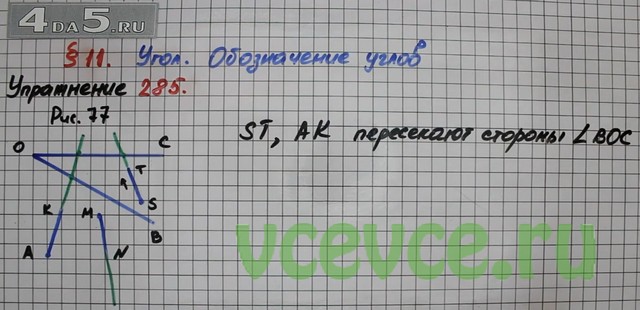 4DA5.RU
§ 11. Угол. Обозначение углов
Упражнение 285.
Рис. 77
ST, AK пересекают стороны ∠BOC
O C
T
S
K M
B
A N
vcevce.ru